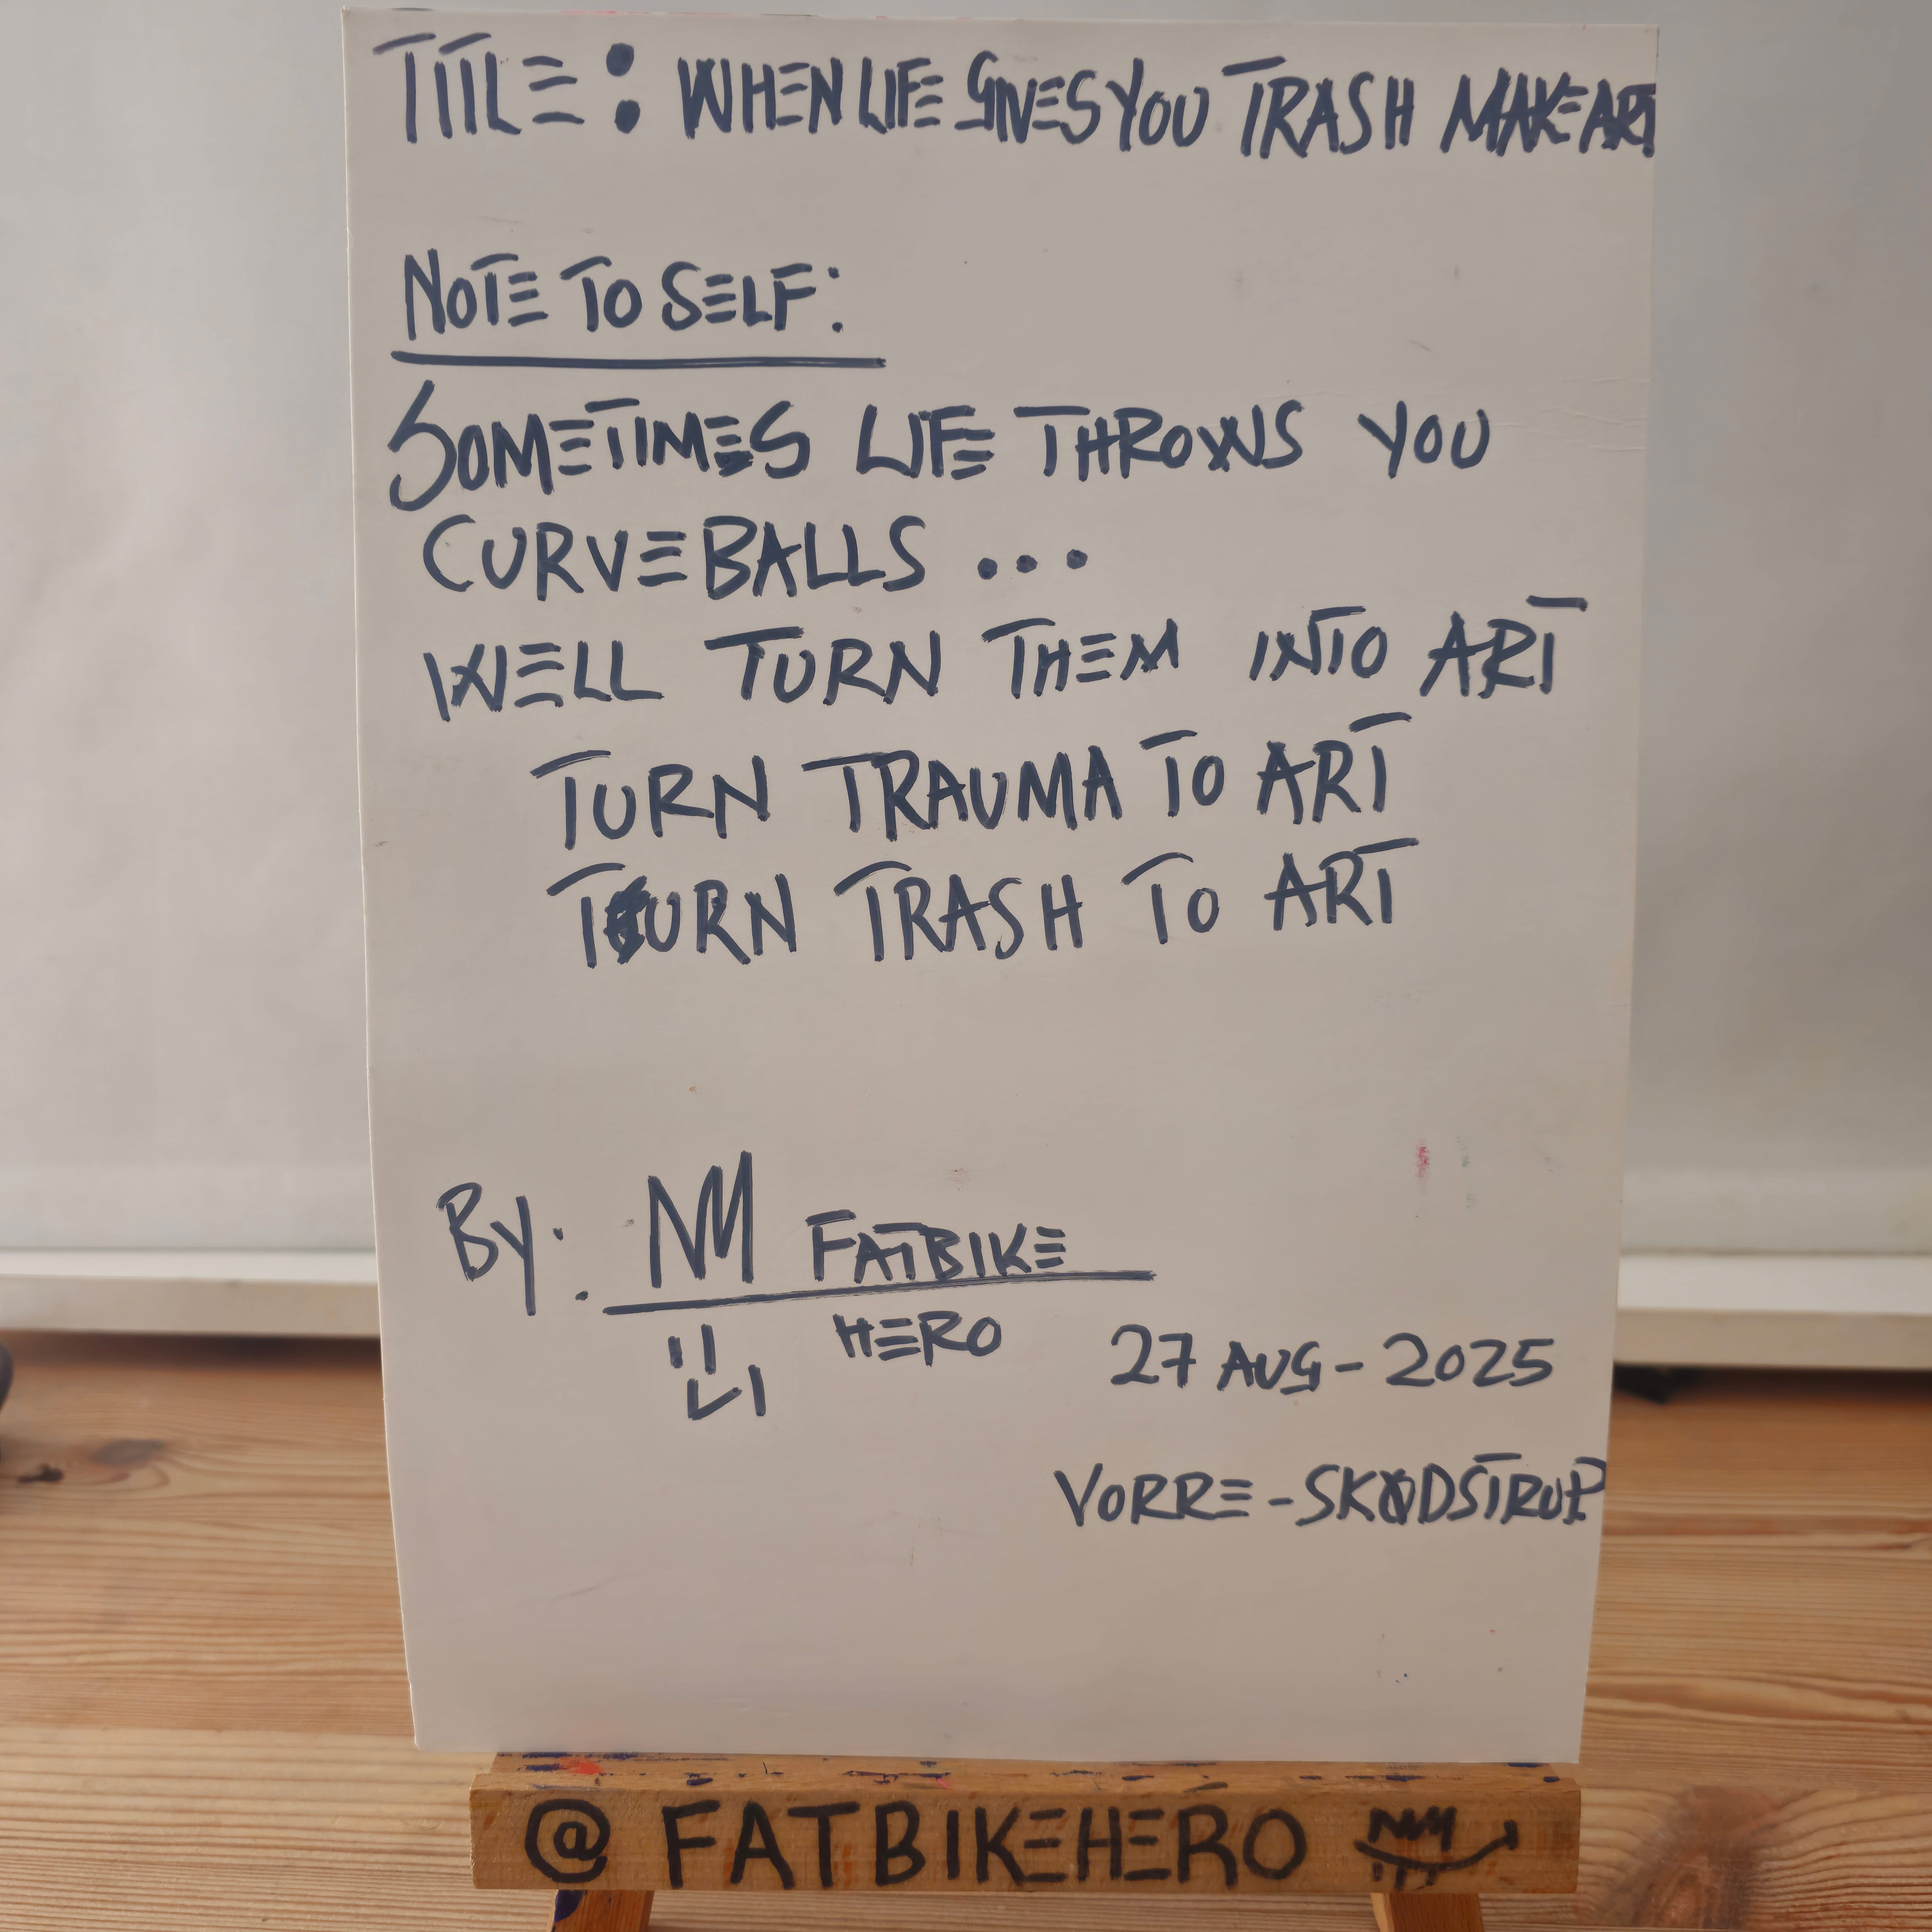 TITLE: WHEN LIFE GIVES YOU TRASH MAKE ART
NOTE TO SELF:
SOMETIMES LIFE THROWS YOU
CURVEBALLS ...
WELL TURN THEM INTO ART
TURN TRAUMA TO ART
TURN TRASH TO ART
By: FATBIKE
HERO
27 AUG - 2025
VORRE - SKØDSTRUP
@FATBIKEHERO